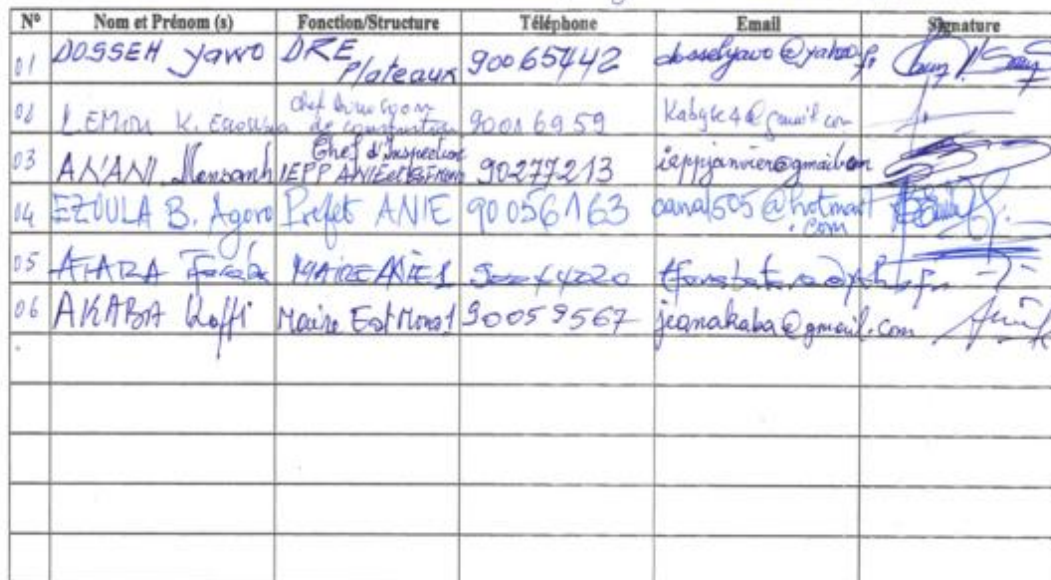 N° Nom et Prénom (s) Fonction/Structure Téléphone Email Signature
01 DOSSEH Yawo DRE Plateaux 90065442 dossehyawo@yahoo.fr
02 LEMOU K. Chef de construction 90016959 kabgk4@gmail.com
03 ANANI Mensanh Chef d'Inspection IEPP ANIE 90277213 ieppjanvier@gmail.com
04 EZOULA B. Agoro Préfet ANIE 90056163 canal505@hotmail.com
05 ATARA MAIRE ANIE 1
06 AKABA Koffi Maire Est Mono 1 90059567 jeanakaba@gmail.com